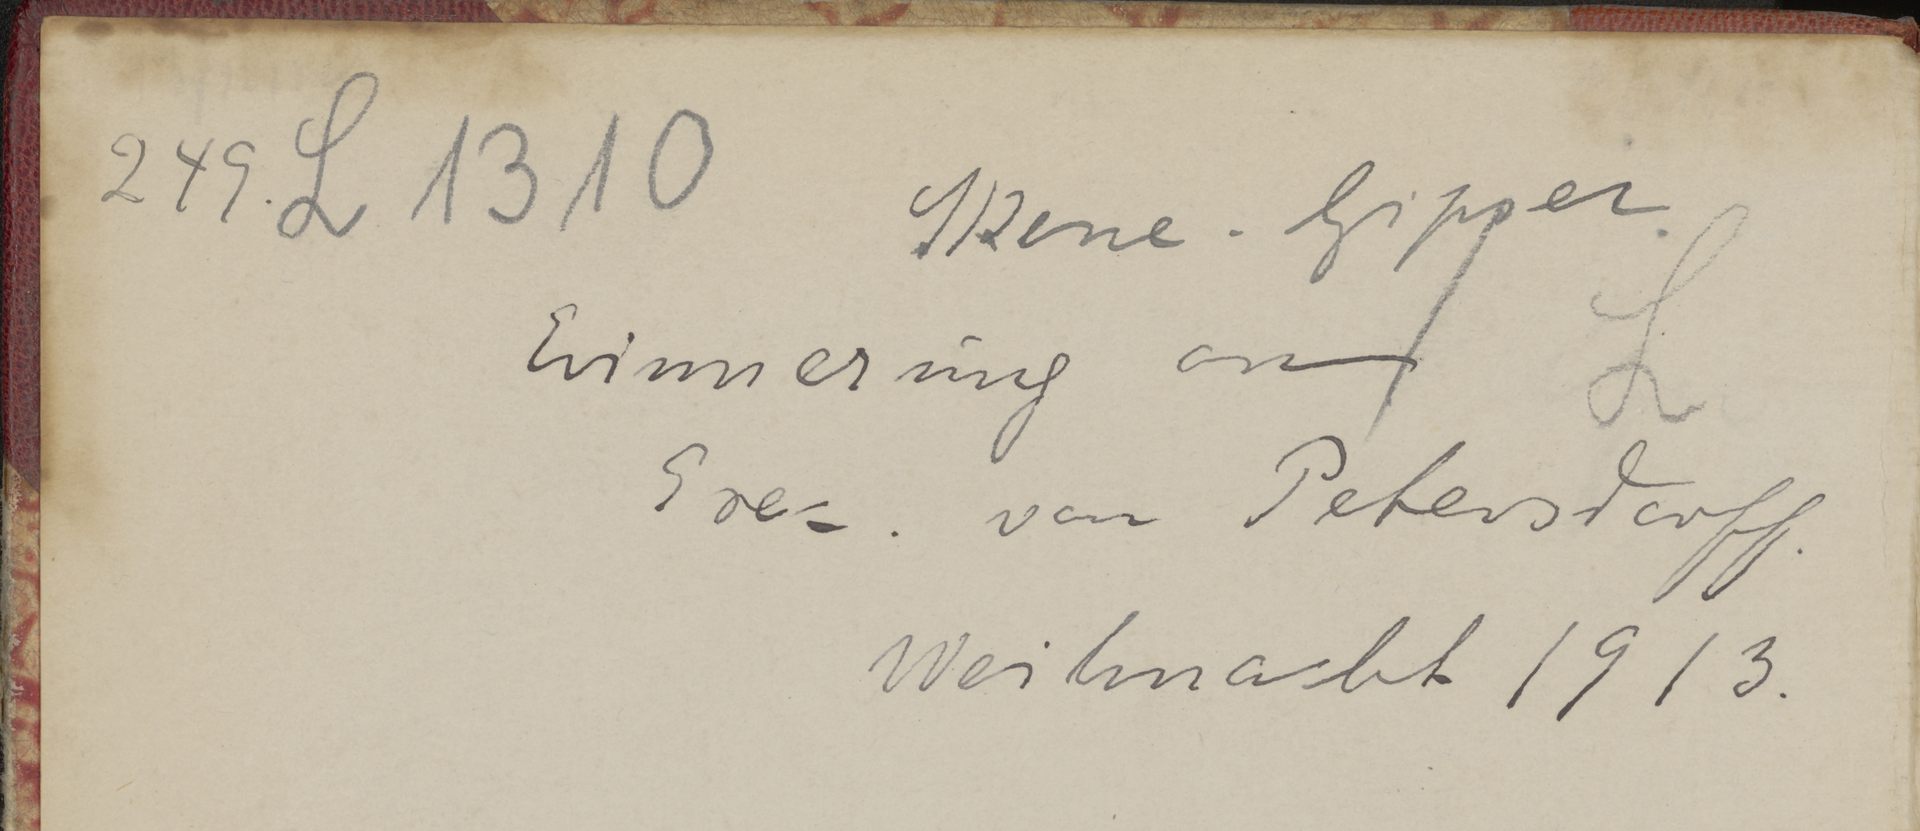 249. L 1310
Skene-Gipser.
Erinnerung an
L
Exc. von Petersdorff.
Weihnacht 1913.